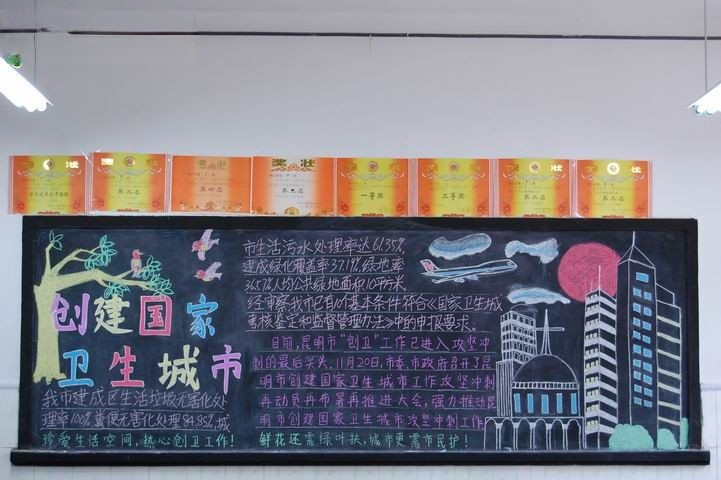 奖状
奖状
奖状
奖状
奖状
奖状
奖状
奖状
第二名
第四名
第三名
一等奖
二等奖
第二名
第三名
创建国家
卫生城市
我市建成区生活垃圾无害化处
理率100%粪便无害化处理94.95%城
市生活污水处理率达61.35%
建成绿化覆盖率37.19%绿地率
36.57%人均公共绿地面积10平方米
经审察我市已有10个基本条件符合《国家卫生城
考核鉴定和监督管理办法》中的申报要求。
目前,昆明市"创卫"工作已进入攻坚冲
刺的最后关头,11月20日,市委、市政府召开了昆
明市创建国家卫生城市工作攻坚冲刺
再动员再部署再推进大会,强力推动昆
明市创建国家卫生城市攻坚冲刺工作
珍爱生活空间,热心创卫工作!
鲜花还需绿叶扶,城市更需市民护!